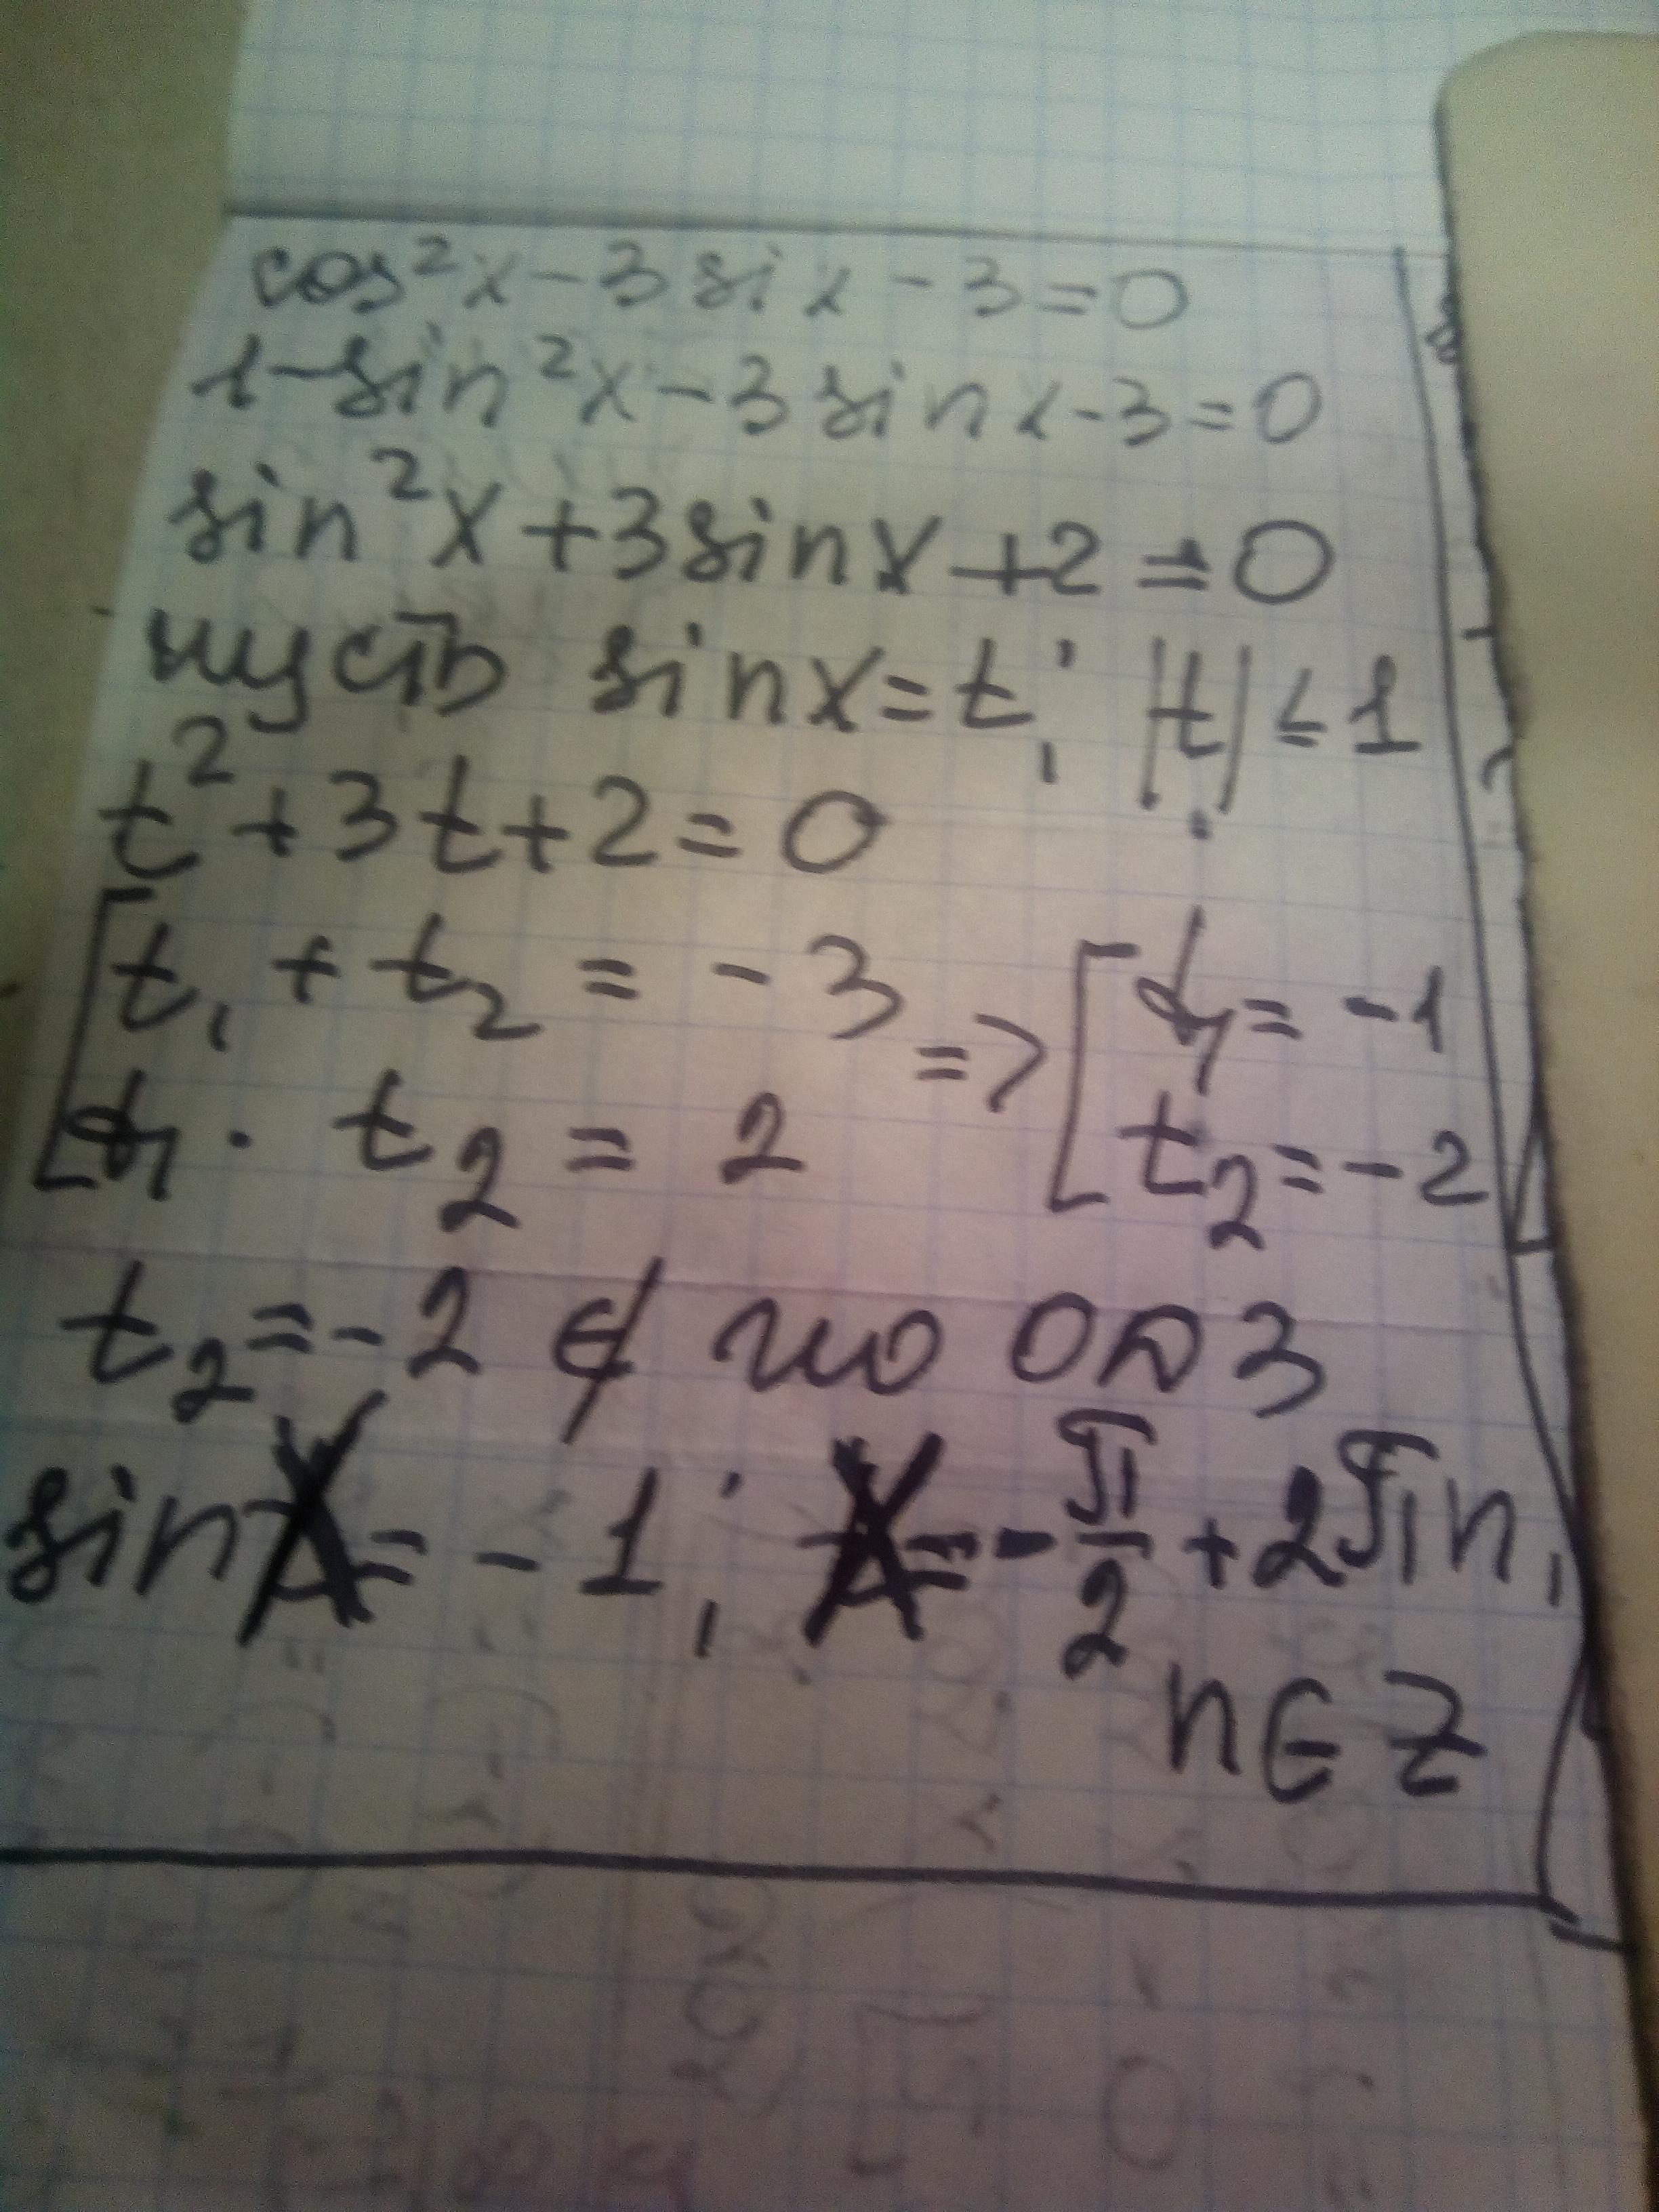 cos²x - 3 six - 3 = 0
1 - sin²x - 3 sin x - 3 = 0
sin²x + 3 sin x + 2 = 0
пусть sin x = t; |t| ≤ 1
t² + 3t + 2 = 0
[ t₁ + t₂ = - 3 => [ t₁ = - 1
[ t₁ · t₂ = 2 [ t₂ = - 2
t₂ = - 2 ∉ по ОДЗ
sin x = - 1; x = - π/2 + 2πn,
n ∈ Z